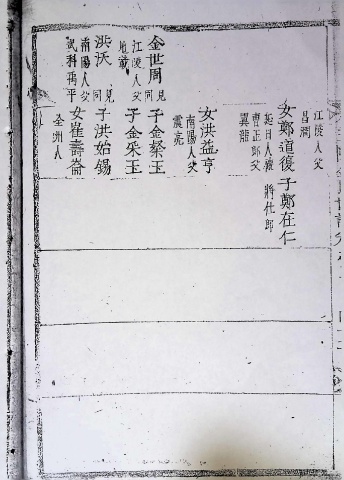 江陵人父
昌潤
女鄭道復 子鄭在仁
延日人 將仕郎
曹正郎父
翼龍
女洪益亨
南陽人父
震亮
金世周 見同 子金粲玉
江陵人父 子金采玉
地載
洪沃 見同 子洪始錫
南陽人父 女崔壽崙
武科禹平 全州人